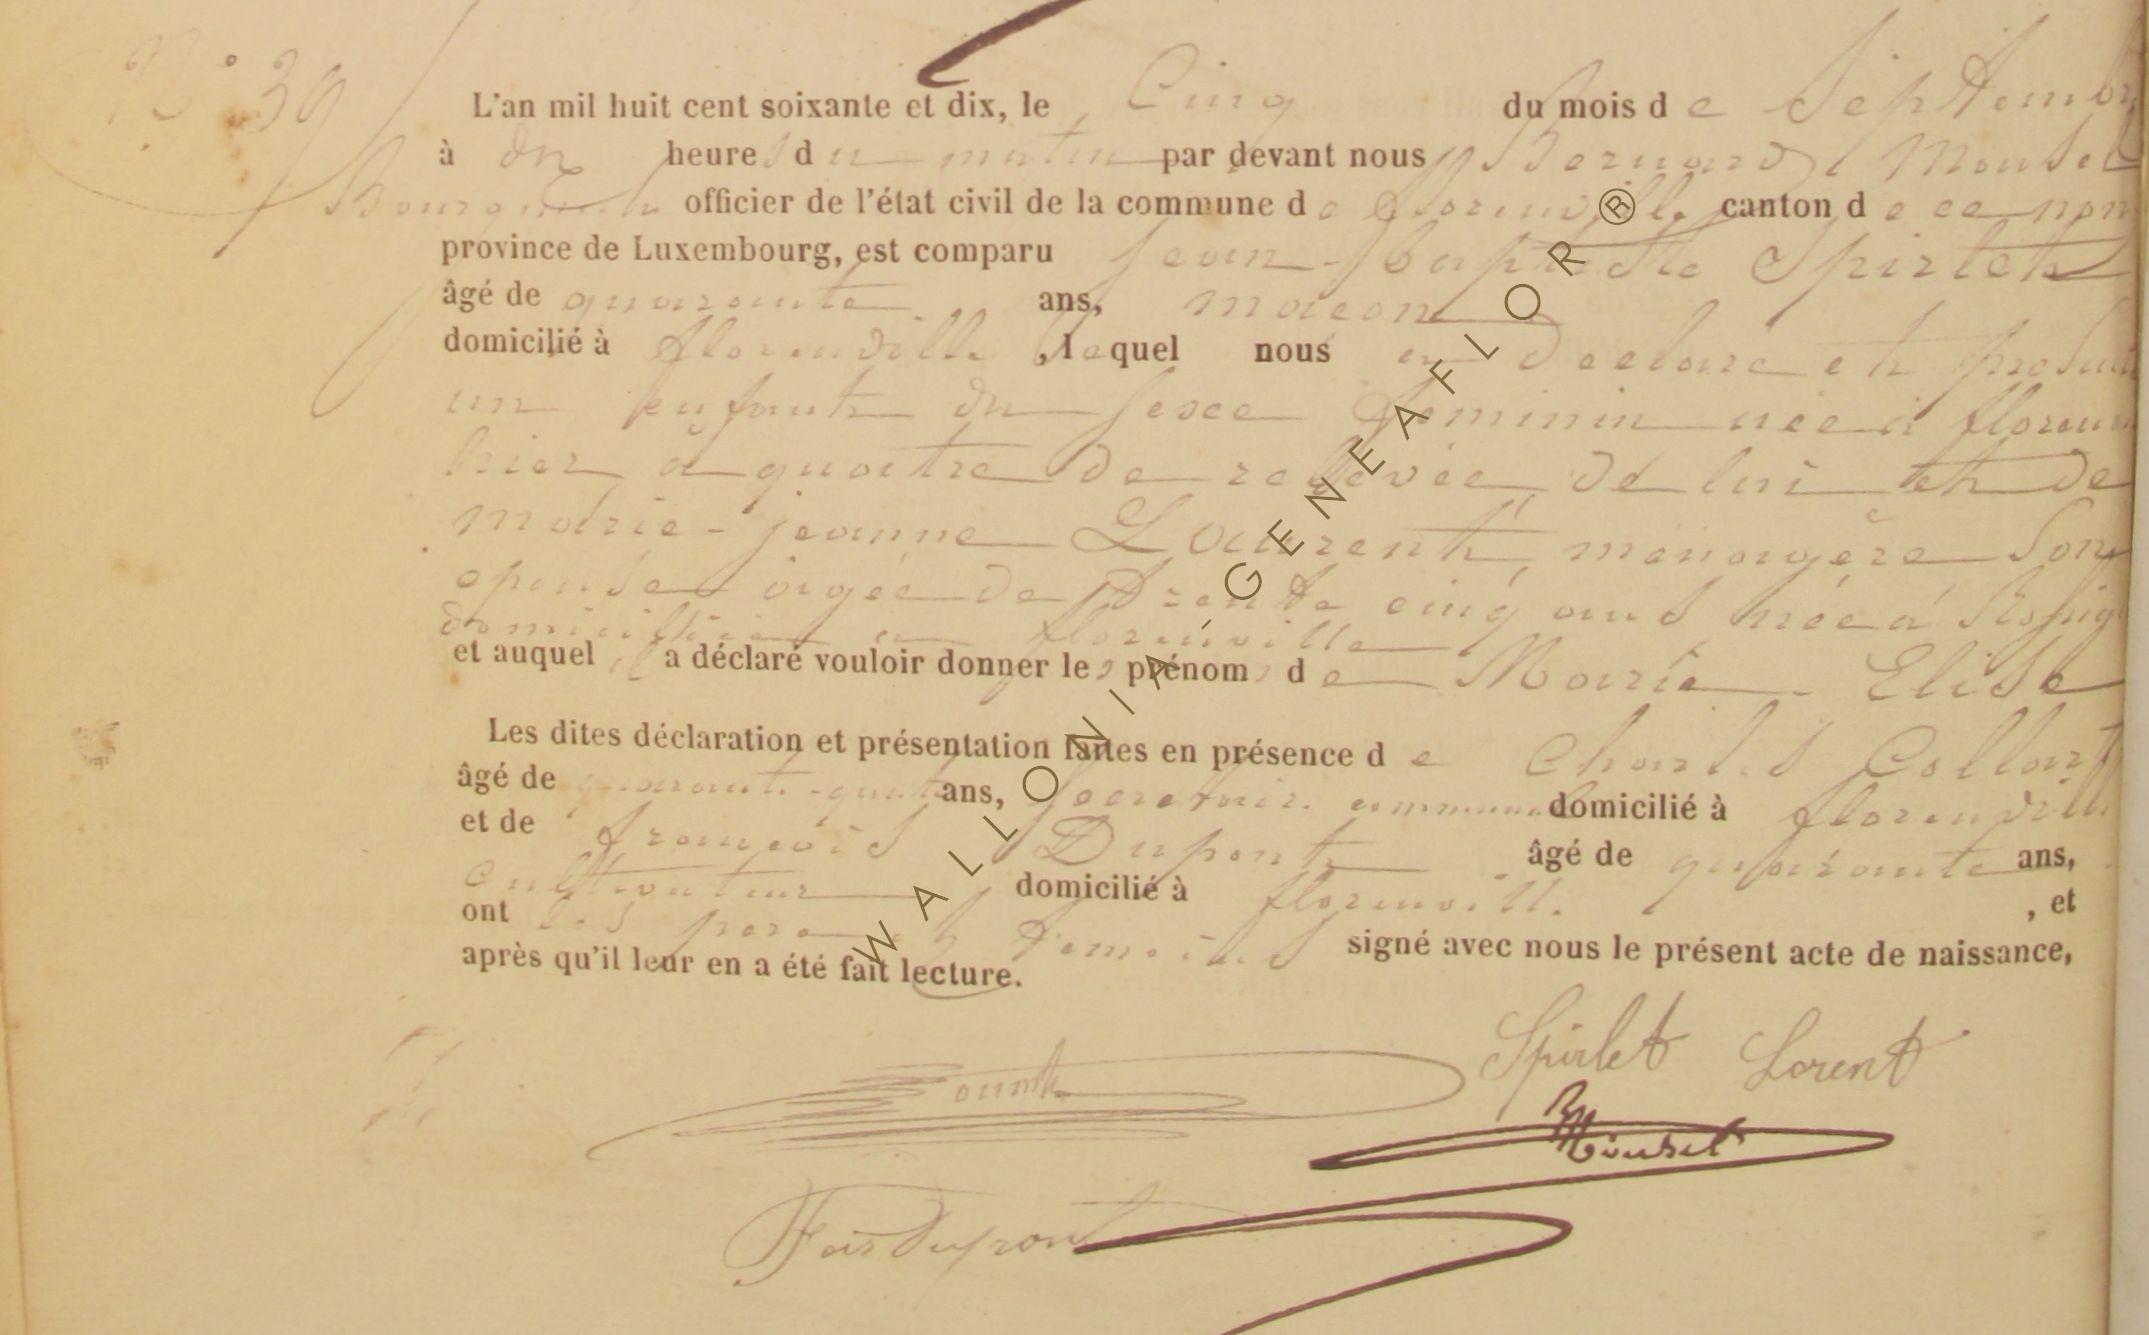 N° 39
L'an mil huit cent soixante et dix, le Cinq du mois de Septembre
à dix heures du matin par devant nous Bernard Mousel
Bourgmestre officier de l'état civil de la commune de florenville canton de ce nom
province de Luxembourg, est comparu Jean-baptiste Spirlet
âgé de quarante ans, macon
domicilié à florenville, lequel nous en declare et presente
un enfant du sexe feminin née à floren
hier à quatre de relevée de lui et de
marie-jeanne Laurent, ménagère son
epouse agée de trente cinq ans née à
domiciliée à florenville
et auquel il a déclaré vouloir donner les prénoms de Marie Elise
Les dites déclaration et présentation faites en présence de Charles Collart
âgé de quarante-quatre ans, Secretaire communal domicilié à florenville
et de françois Dupont âgé de quarante ans,
cultivateur domicilié à florenville, et
ont les pere et temoins signé avec nous le présent acte de naissance,
après qu'il leur en a été fait lecture.
Spirlet Lorent
Mousel
Fois Dupont
WALLONIA GENEAFLOR ®